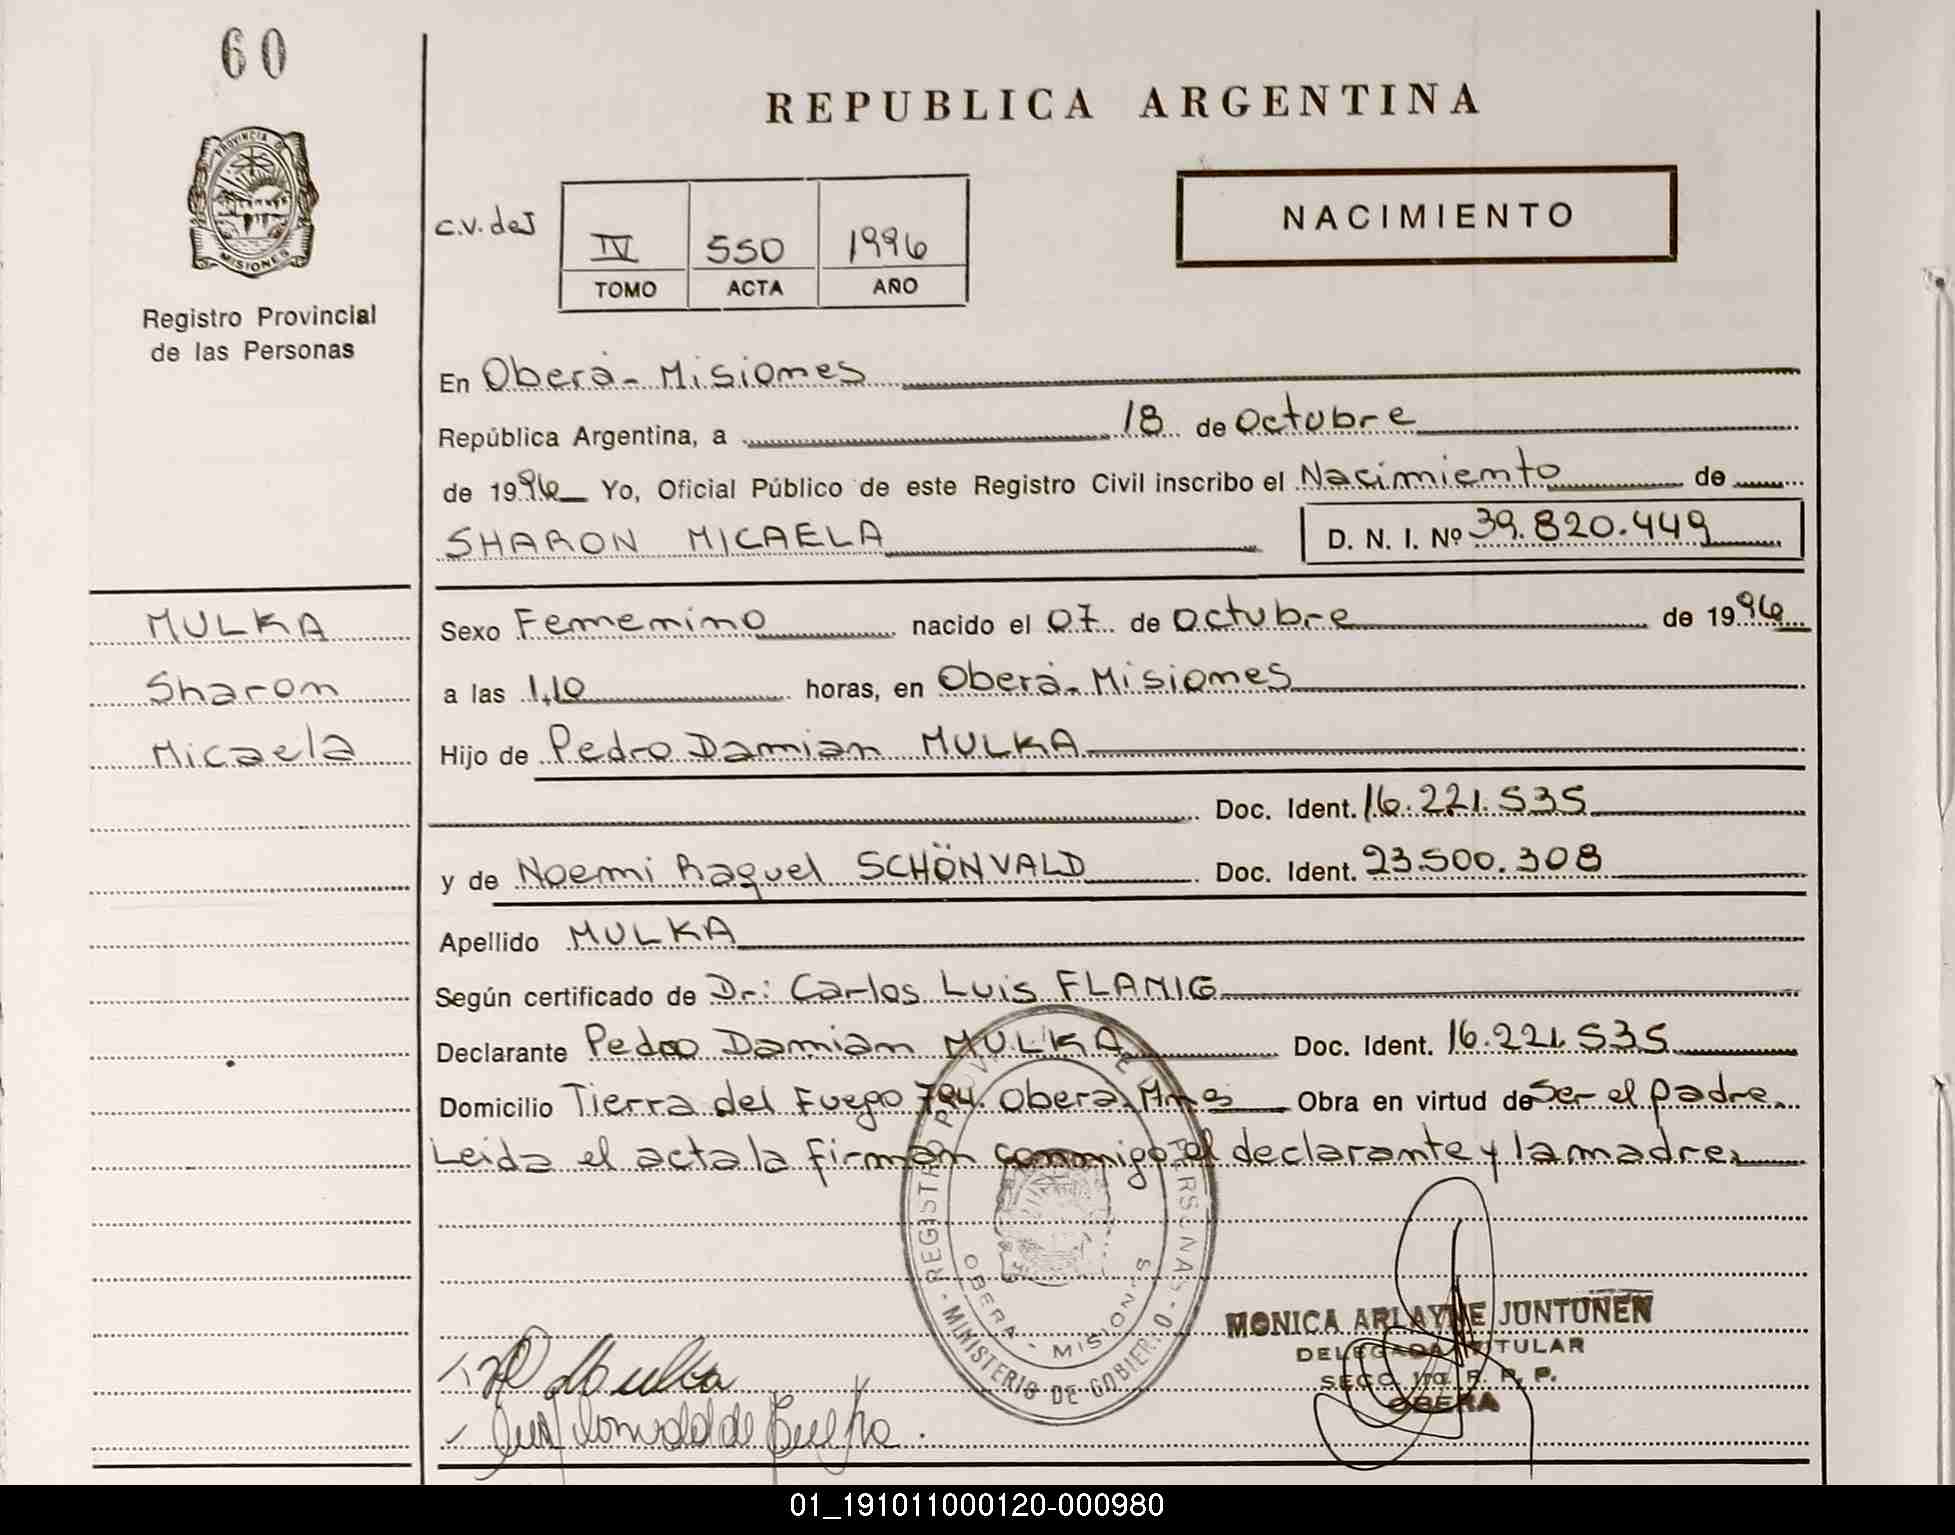 60
PROVINCIA DE
MISIONES
Registro Provincial
de las Personas
REPUBLICA ARGENTINA
NACIMIENTO
C.V. deJ
IV 550 1996
TOMO ACTA AÑO
En Oberá- Misiones
República Argentina, a 18 de Octubre
de 1996 Yo, Oficial Público de este Registro Civil inscribo el Nacimiento de
SHARON MICAELA D. N. I. Nº 39.820.449
MULKA
Sharon
Micaela
Sexo Femenino nacido el 07 de Octubre de 1996
a las 1,10 horas, en Oberá- Misiones
Hijo de Pedro Damian MULKA
Doc. Ident. 16.221.535
y de Noemi Raquel SCHÖNVALD Doc. Ident. 23.500.308
Apellido MULKA
Según certificado de Dr: Carlos Luis FLAMIG
Declarante Pedro Damian MULKA Doc. Ident. 16.221.535
Domicilio Tierra del Fuego 794. Oberá. Mnes Obra en virtud de Ser el padre.
Leida el acta la firman conmigo el declarante y la madre.
REGISTRO PROV DE PERSONAS
MINISTERIO DE GOBIERNO
OBERA - MISIONES
MONICA ARLAYNE JUNTUNEN
DELEGADA TITULAR
SECC. 1ra. R. P. P.
OBERA
01_191011000120-000980